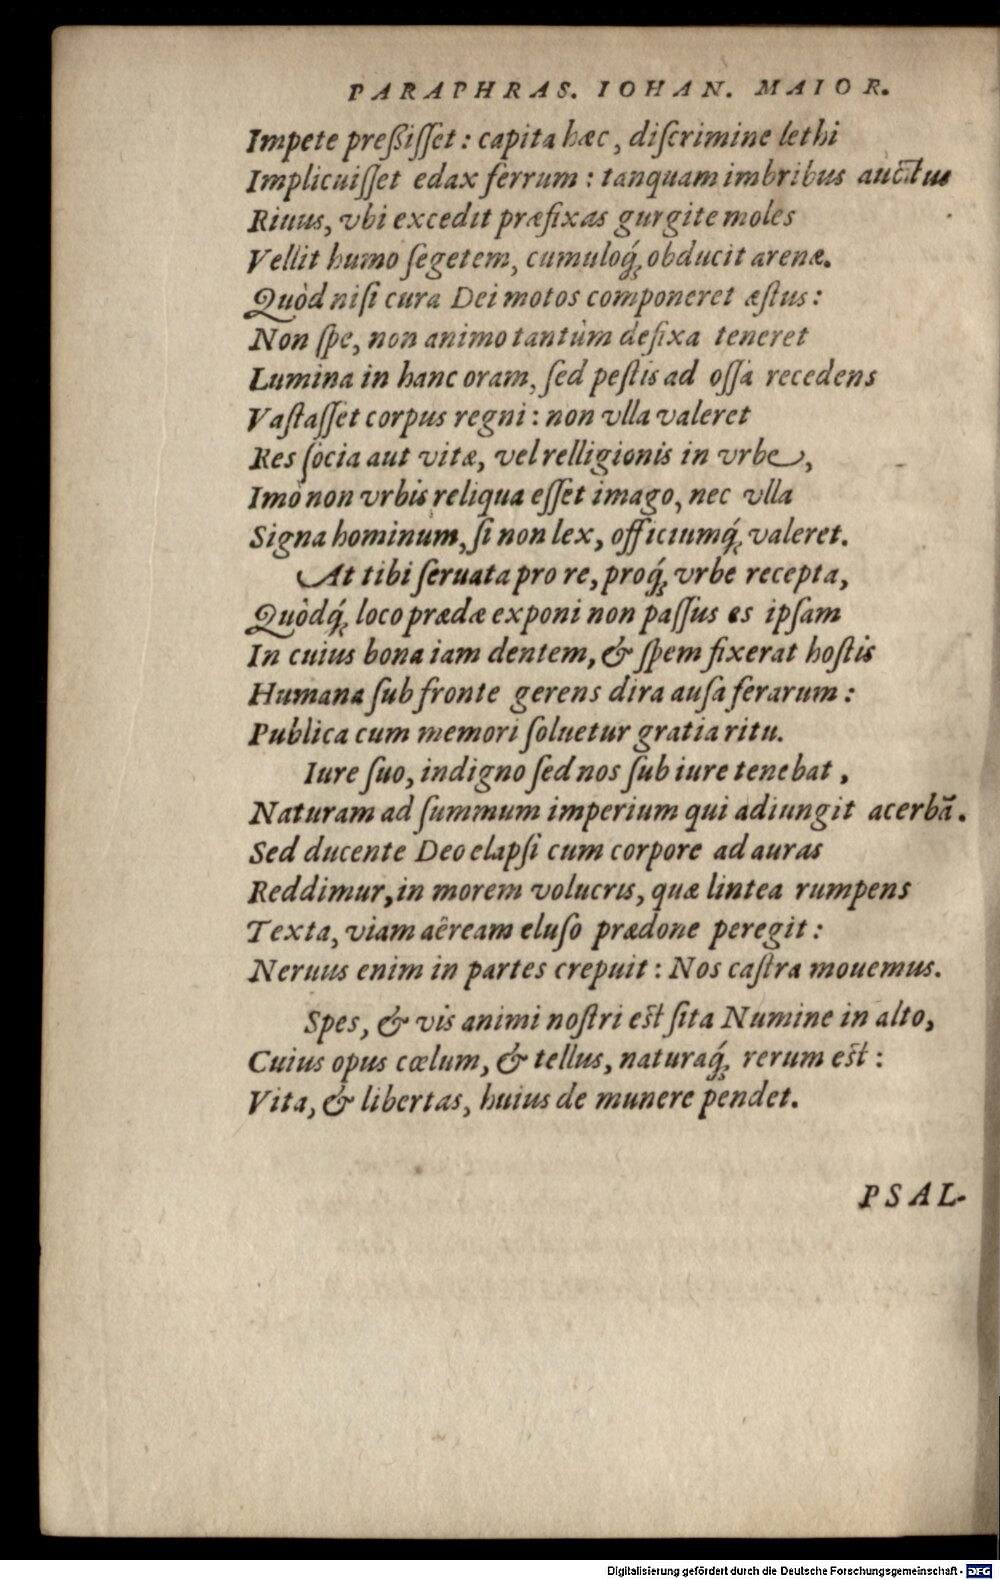 PARAPHRAS. IOHAN. MAIOR.
Impete preßiſſet : capita hæc, diſcrimine lethi
Implicuiſſet edax ferrum : tanquam imbribus auctus
Riuus, vbi excedit præfixas gurgite moles
Vellit humo ſegetem, cumuloq́; obducit arenæ.
Quòd niſi cura Dei motos componeret æſtus :
Non ſpe, non animo tantùm defixa teneret
Lumina in hanc oram, ſed peſtis ad oſſa recedens
Vaſtaſſet corpus regni : non vlla valeret
Res ſocia aut vitæ, vel relligionis in vrbe,
Imò non vrbis reliqua eſſet imago, nec vlla
Signa hominum, ſi non lex, officiumq́; valeret.
At tibi ſeruata pro re, proq́; vrbe recepta,
Quòdq́; loco prædæ exponi non paſſus es ipſam
In cuius bona iam dentem, & ſpem fixerat hoſtis
Humana ſub fronte gerens dira auſa ferarum :
Publica cum memori ſoluetur gratia ritu.
Iure ſuo, indigno ſed nos ſub iure tenebat,
Naturam ad ſummum imperium qui adiungit acerbã.
Sed ducente Deo elapſi cum corpore ad auras
Reddimur, in morem volucris, quæ lintea rumpens
Texta, viam aëream eluſo prædone peregit :
Neruus enim in partes crepuit : Nos caſtra mouemus.
Spes, & vis animi noſtri eſt ſita Numine in alto,
Cuius opus cœlum, & tellus, naturaq́; rerum eſt :
Vita, & libertas, huius de munere pendet.
PSAL-
Digitalisierung gefördert durch die Deutsche Forschungsgemeinschaft - DFG